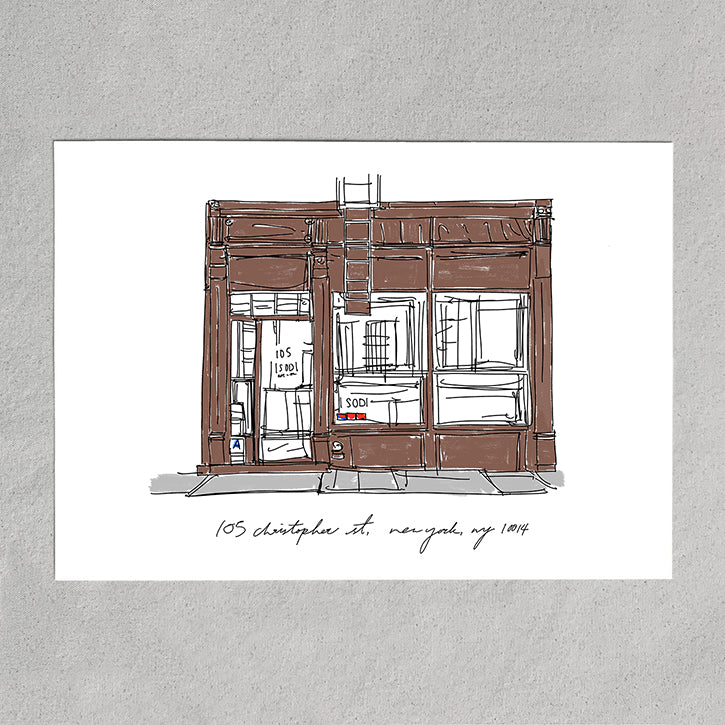 105
I SODI
I SODI
A
105 christopher st, new york, ny 10014